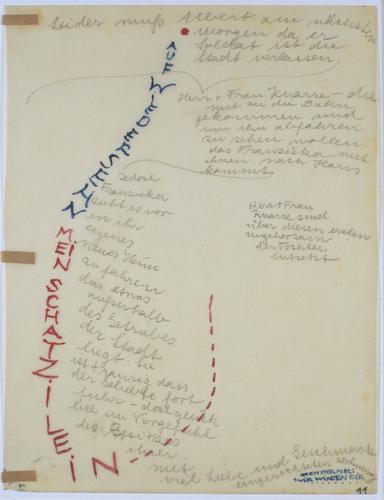 Leider muß Albert am nächsten
Morgen da er
Soldat ist die
Stadt verlassen
AUF WIEDERSEHN
MEIN SCHATZILEIN
Herr + Frau Knarre – die
mit an die Bahn
gekommen sind
um ihn abfahren
zu sehen wollen
das Franziska mit
ihnen nach Haus
kommt
Jedoch
Franziska
zieht es vor
in ihr
eigenes
neues Heim
zu fahren
das etwas
außerhalb
des Getriebes
der Stadt
liegt. Sie
ist traurig dass
der Geliebte fort
fuhr – doch glück
lich im Vorgefühl
des Besitzes
ihrer
mit
viel Liebe und Geschmack
eingerichteten Wohnung
Herr + Frau
Knarre sind
über diesen ersten
Ungehorsam
der Tochter
entsetzt
WIR WINDEN DIR
11